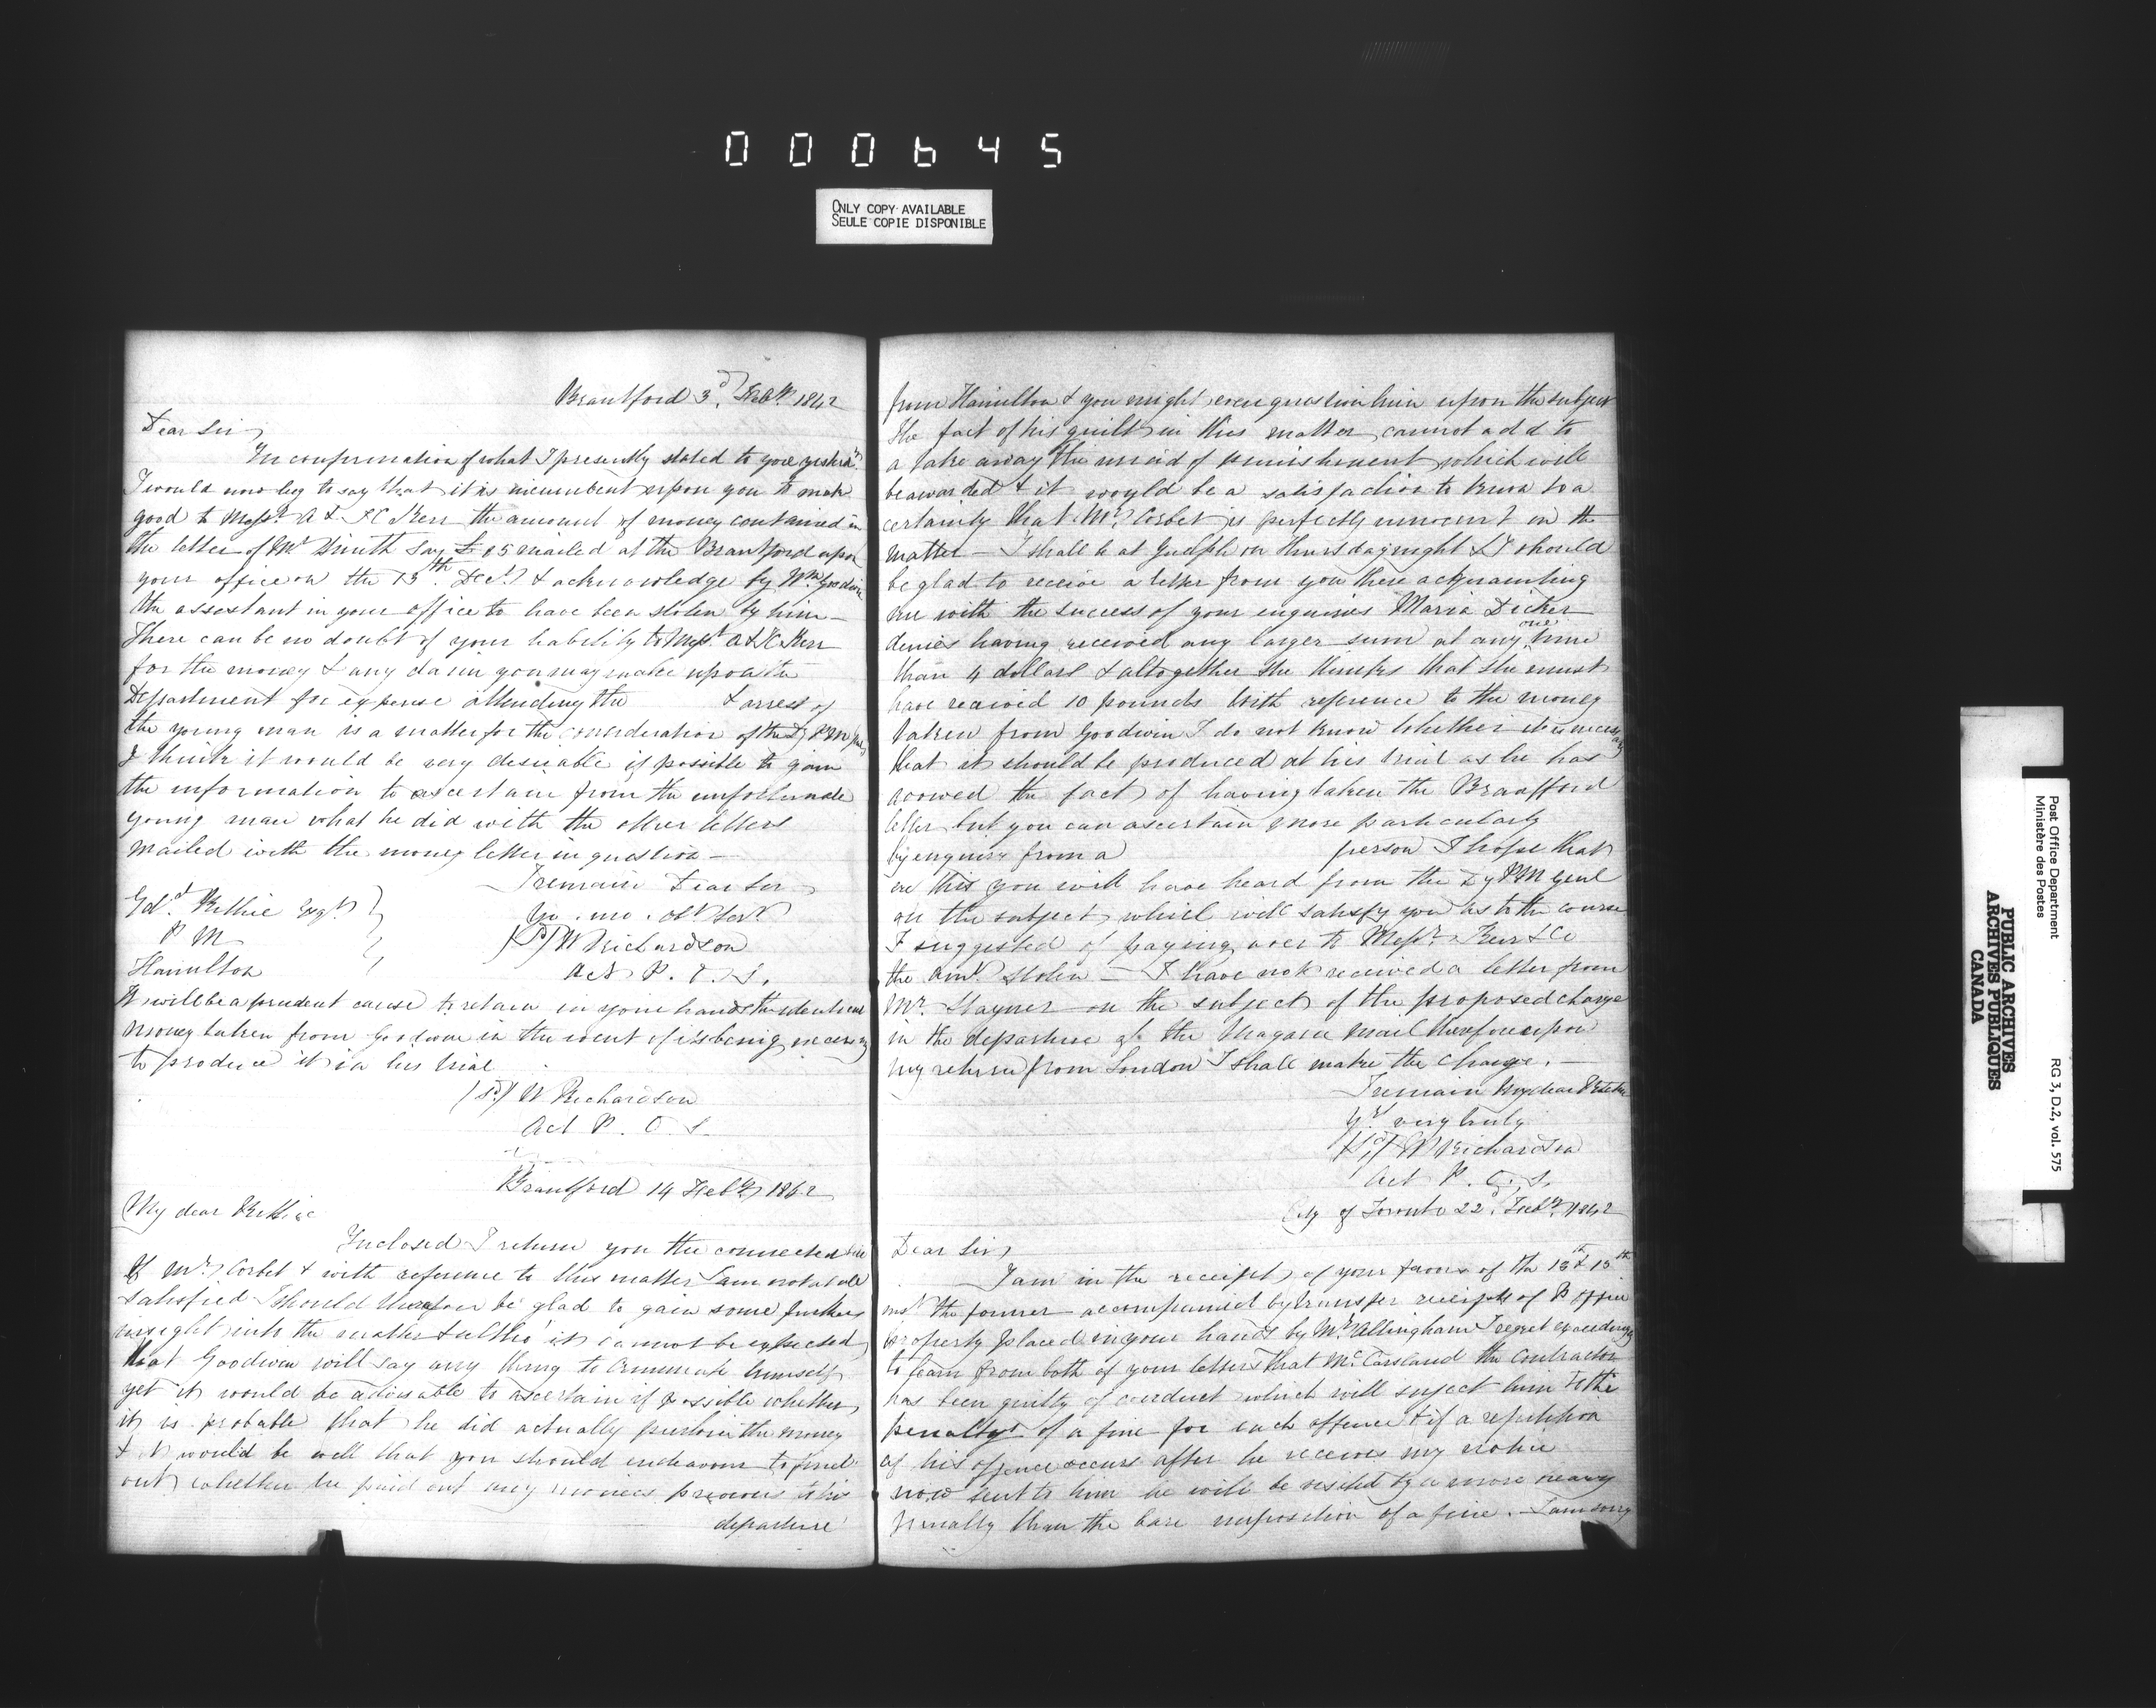 000645
ONLY COPY AVAILABLE
SEULE COPIE DISPONIBLE
Brantford 3d. Feby. 1842
Dear Sir
In confirmation of what I presently stated to you yesterdy.
I would now beg to say that it is incumbent upon you to make
good to Messrs. A & C Kerr the amount of money contained in
the letter of Mr Smith say £15 mailed at the Brantford upon
your office on the 13th. Decr. & acknowledge by Wm Goodwin
the assestant in your office to have been stolen by him —
There can be no doubt of your liability to Messrs. A & C Kerr
for the money & any claim you may make upon the
Department for expense attending the & arrest of
the young man is a matter for the consideration of the Dy P M
I think it would be very desirable if possible to gain
the information to ascertain from the unfortunate
young man what he did with the other letters
mailed with the money letter in question —
I remain Dear Sir
Yr. mo. obt Servt.
Ed. Ritchie Esqr.
P M
Hamilton
(Sd) W Richardson
Act P. O. S.
It will be a prudent course to retain in your hands the identical
money taken from Goodwin in the event of its being necessary
to produce it in his trial
(Sd) W Richardson
Act P. O. S.
Brantford 14 Feby 1842
My dear Ritchie
Inclosed I return you the connected
of Mr. Corbet & with reference to this matter I am not at all
satisfied I should therefore be glad to gain some further
insight into the matter & altho' it cannot be expected
that Goodwin will say any thing to criminate himself
yet it would be advisable to ascertain if possible whether
it is probable that he did actually purloin the money
& it would be well that you should endeavour to find
out whether he paid out any monies previous to his
departure
from Hamilton & you might even question him upon the subject
the fact of his guilt in this matter cannot add to
a take away the meed of punishment which will
be awarded & it would be a satisfaction to know to a
certainty that Mr. Corbet is perfectly innocent in the
matter — I shall be at Guelph on Thursday night & I should
be glad to receive a letter from you there acquainting
me with the success of your enquiries Maria Dicker
denies having received any larger sum at any one time
than 4 dollars & altogether she thinks that she must
have received 10 pounds With reference to the money
taken from Goodwin I do not know whether it is necessary
that it should be produced at his trial as he has
avowed the fact of having taken the Brantford
letter but you can ascertain more particularly
by enquiry from a person I hope that
ere this you will have heard from the Dy P M Genl
on the subject which will satisfy you as to the course
I suggested of paying over to Messrs. Kerr & Co
the amt. stolen — I have not received a letter from
Mr. Stayner on the subject of the proposed change
in the departure of the Niagara mail therefore upon
my return from London I shall make the change. —
I remain My dear Ritchie
Yrs very truly
(Sd) W Richardson
Act P. O. S.
City of Toronto 22d. Feby. 1842
Dear Sir
I am in the receipt of your favors of the 13th & 15th
inst the former accompanied by transfer receipts of P office
property placed in your hands by Mr Allingham I regret exceedingly
to learn from both of your letters that McCausland the Contractor
has been guilty of conduct which will suject him to the
penalty of a fine for each offence & if a repetition
of his offence occurs after he receives my notice
now sent to him he will be visited by a more heavy
penalty than the bare imposition of a fine. — I am sorry
Post Office Department
Ministère des Postes
RG 3, D.2, vol. 575
PUBLIC ARCHIVES
ARCHIVES PUBLIQUES
CANADA